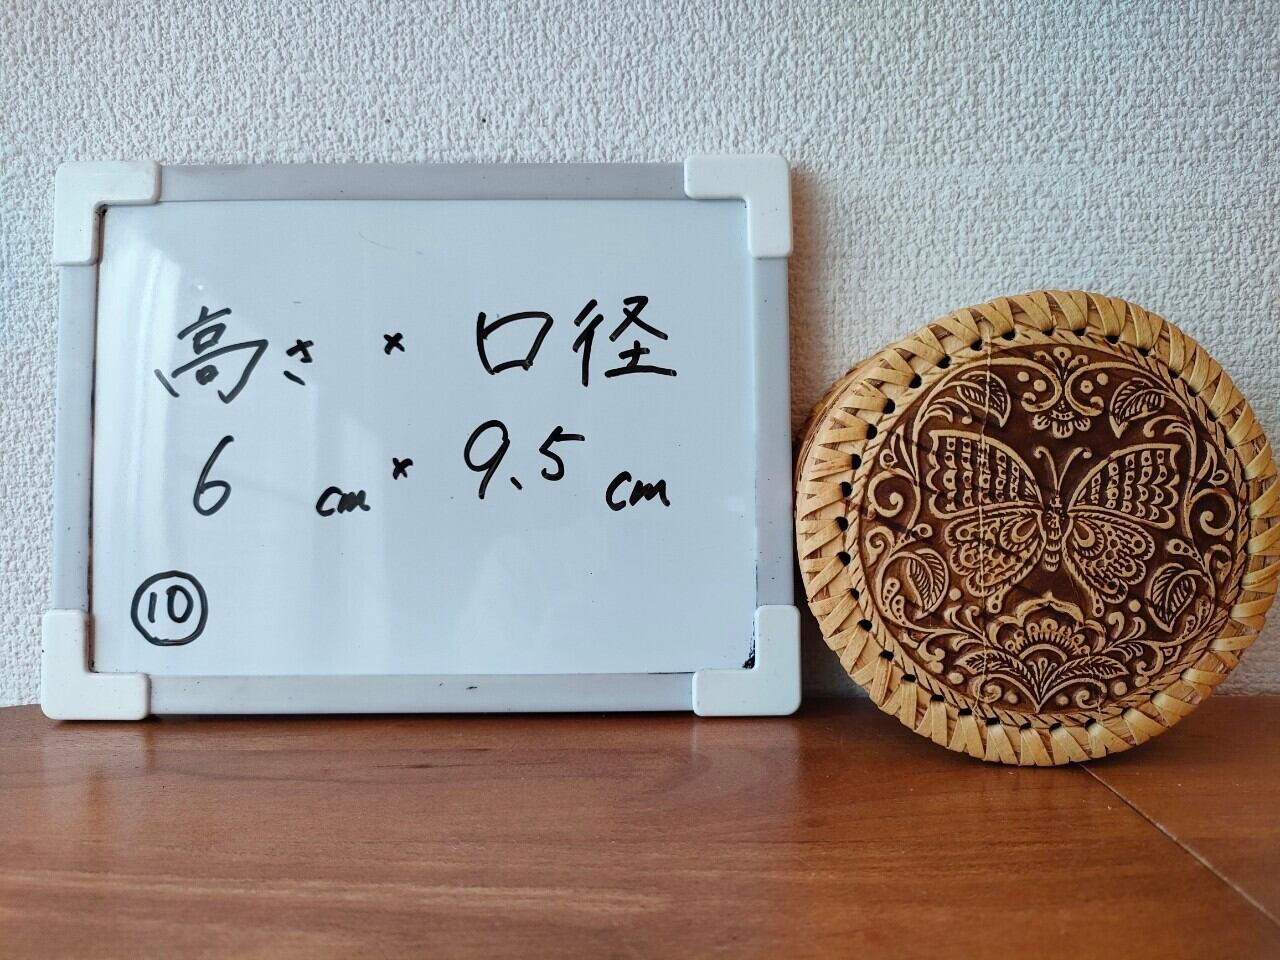 高さ × 口径
6 cm × 9.5 cm
⑩